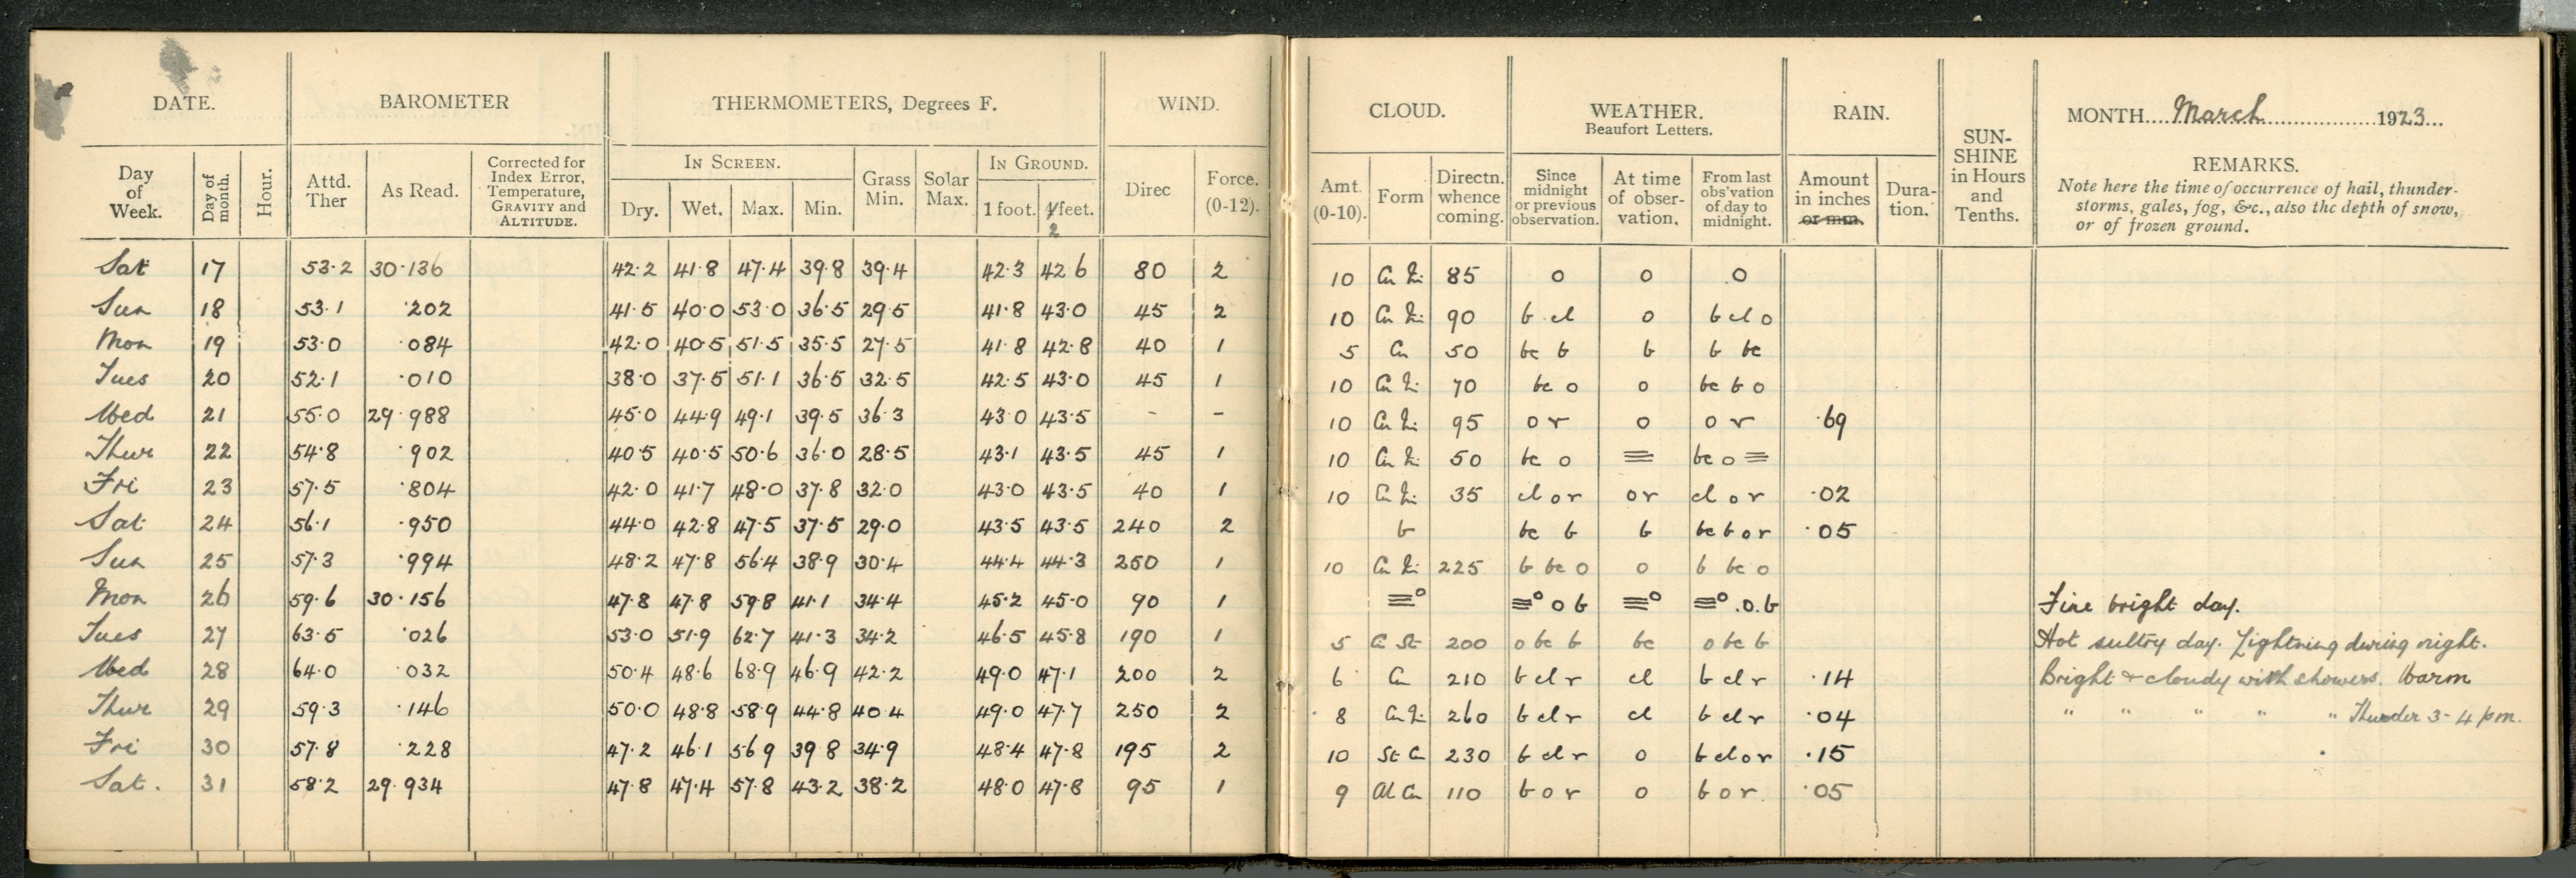 DATE. BAROMETER THERMOMETERS, Degrees F. WIND. CLOUD. WEATHER. Beaufort Letters. RAIN. SUN-SHINE in Hours and Tenths. MONTH....March....1923...
Day of Week. Day of month. Hour. Attd. Ther As Read. Corrected for Index Error, Temperature, GRAVITY and ALTITUDE. IN SCREEN. Dry. Wet. Max. Min. Grass Min. Solar Max. IN GROUND. 1 foot. 4 feet. 2 Direc Force. (0-12). Amt. (0-10). Form Directn. whence coming. Since midnight or previous observation. At time of obser-vation. From last obs'vation of day to midnight. Amount in inches or mm. Dura-tion. REMARKS.
Note here the time of occurrence of hail, thunder-
storms, gales, fog, &c., also the depth of snow,
or of frozen ground.
Sat 17 53·2 30·136 42·2 41·8 47·4 39·8 39·4 42·3 42 6 80 2 10 Cu Ni 85 o o o
Sun 18 53·1 ·202 41·5 40·0 53·0 36·5 29·5 41·8 43·0 45 2 10 Cu Ni 90 b cl o b cl o
Mon 19 53·0 ·084 42·0 40·5 51·5 35·5 27·5 41·8 42·8 40 1 5 Cu 50 bc b b b bc
Tues 20 52·1 ·010 38·0 37·5 51·1 36·5 32·5 42·5 43·0 45 1 10 Cu Ni 70 bc o o bc b o
Wed 21 55·0 29·988 45·0 44·9 49·1 39·5 36·3 43·0 43·5 - - 10 Cu Ni 95 o r o o r ·69
Thur 22 54·8 ·902 40·5 40·5 50·6 36·0 28·5 43·1 43·5 45 1 10 Cu Ni 50 bc o ≡ bc o ≡
Fri 23 57·5 ·804 42·0 41·7 48·0 37·8 32·0 43·0 43·5 40 1 10 Cu Ni 35 cl o r o r cl o r ·02
Sat 24 56·1 ·950 44·0 42·8 47·5 37·5 29·0 43·5 43·5 240 2 b bc b b bc b o r ·05
Sun 25 57·3 ·994 48·2 47·8 56·4 38·9 30·4 44·4 44·3 250 1 10 Cu Ni 225 b bc o o b bc o
Mon 26 59·6 30·156 47·8 47·8 59·8 41·1 34·4 45·2 45·0 90 1 ≡° ≡° o b ≡° ≡°.o.b Fine bright day.
Tues 27 63·5 ·026 53·0 51·9 62·7 41·3 34·2 46·5 45·8 190 1 5 Ci St 200 o bc b bc o bc b Hot sultry day. Lightning during night.
Wed 28 64·0 ·032 50·4 48·6 68·9 46·9 42·2 49·0 47·1 200 2 6 Cu 210 b cl r cl b cl r ·14 Bright & cloudy with showers. Warm
Thur 29 59·3 ·146 50·0 48·8 58·9 44·8 40 4 49·0 47·7 250 2 8 Cu Ni 260 b cl r cl b cl r ·04 " " " " " Thunder 3-4 pm.
Fri 30 57·8 ·228 47·2 46·1 56 9 39 8 34·9 48·4 47·8 195 2 10 St Cu 230 b cl r o b cl o r ·15
Sat. 31 58·2 29·934 47·8 47·4 57·8 43·2 38·2 48·0 47·8 95 1 9 Al Cu 110 b o r o b o r ·05